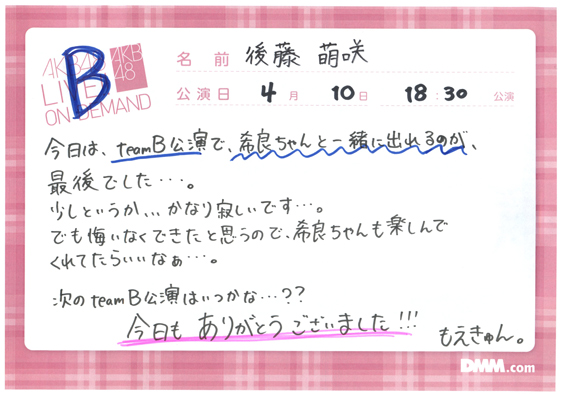 AKB48
LIVE!!
ON DEMAND
B
AKB
48
名前 後藤 萌咲
公演日 4月 10日 18:30 公演
今日は、teamB公演で、希良ちゃんと一緒に出れるのが、
最後でした…。
少しというか、、、かなり寂しいです…。
でも悔いなくできたと思うので、希良ちゃんも楽しんで
くれてたらいいなぁ…。
次のteamB公演はいつかな…??
今日も ありがとうございました!!!
もえきゅん。
DMM.com